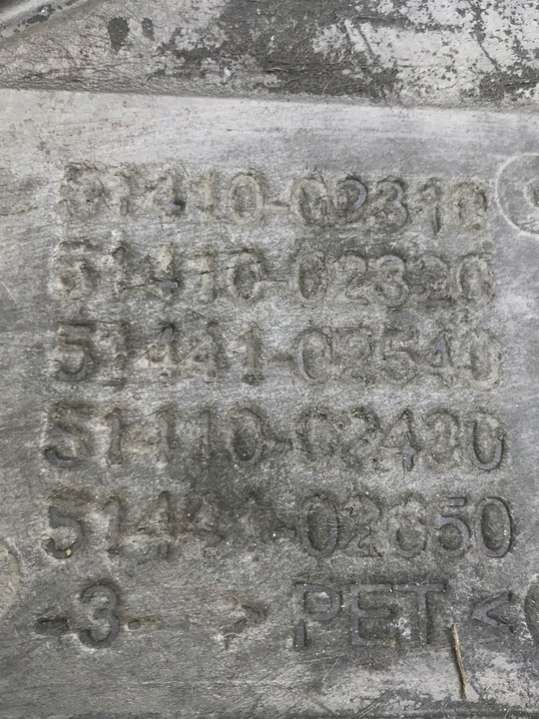 51410-02310
51410-02320
51441-02540
51410-02430
51441-02650
-3- >PET<